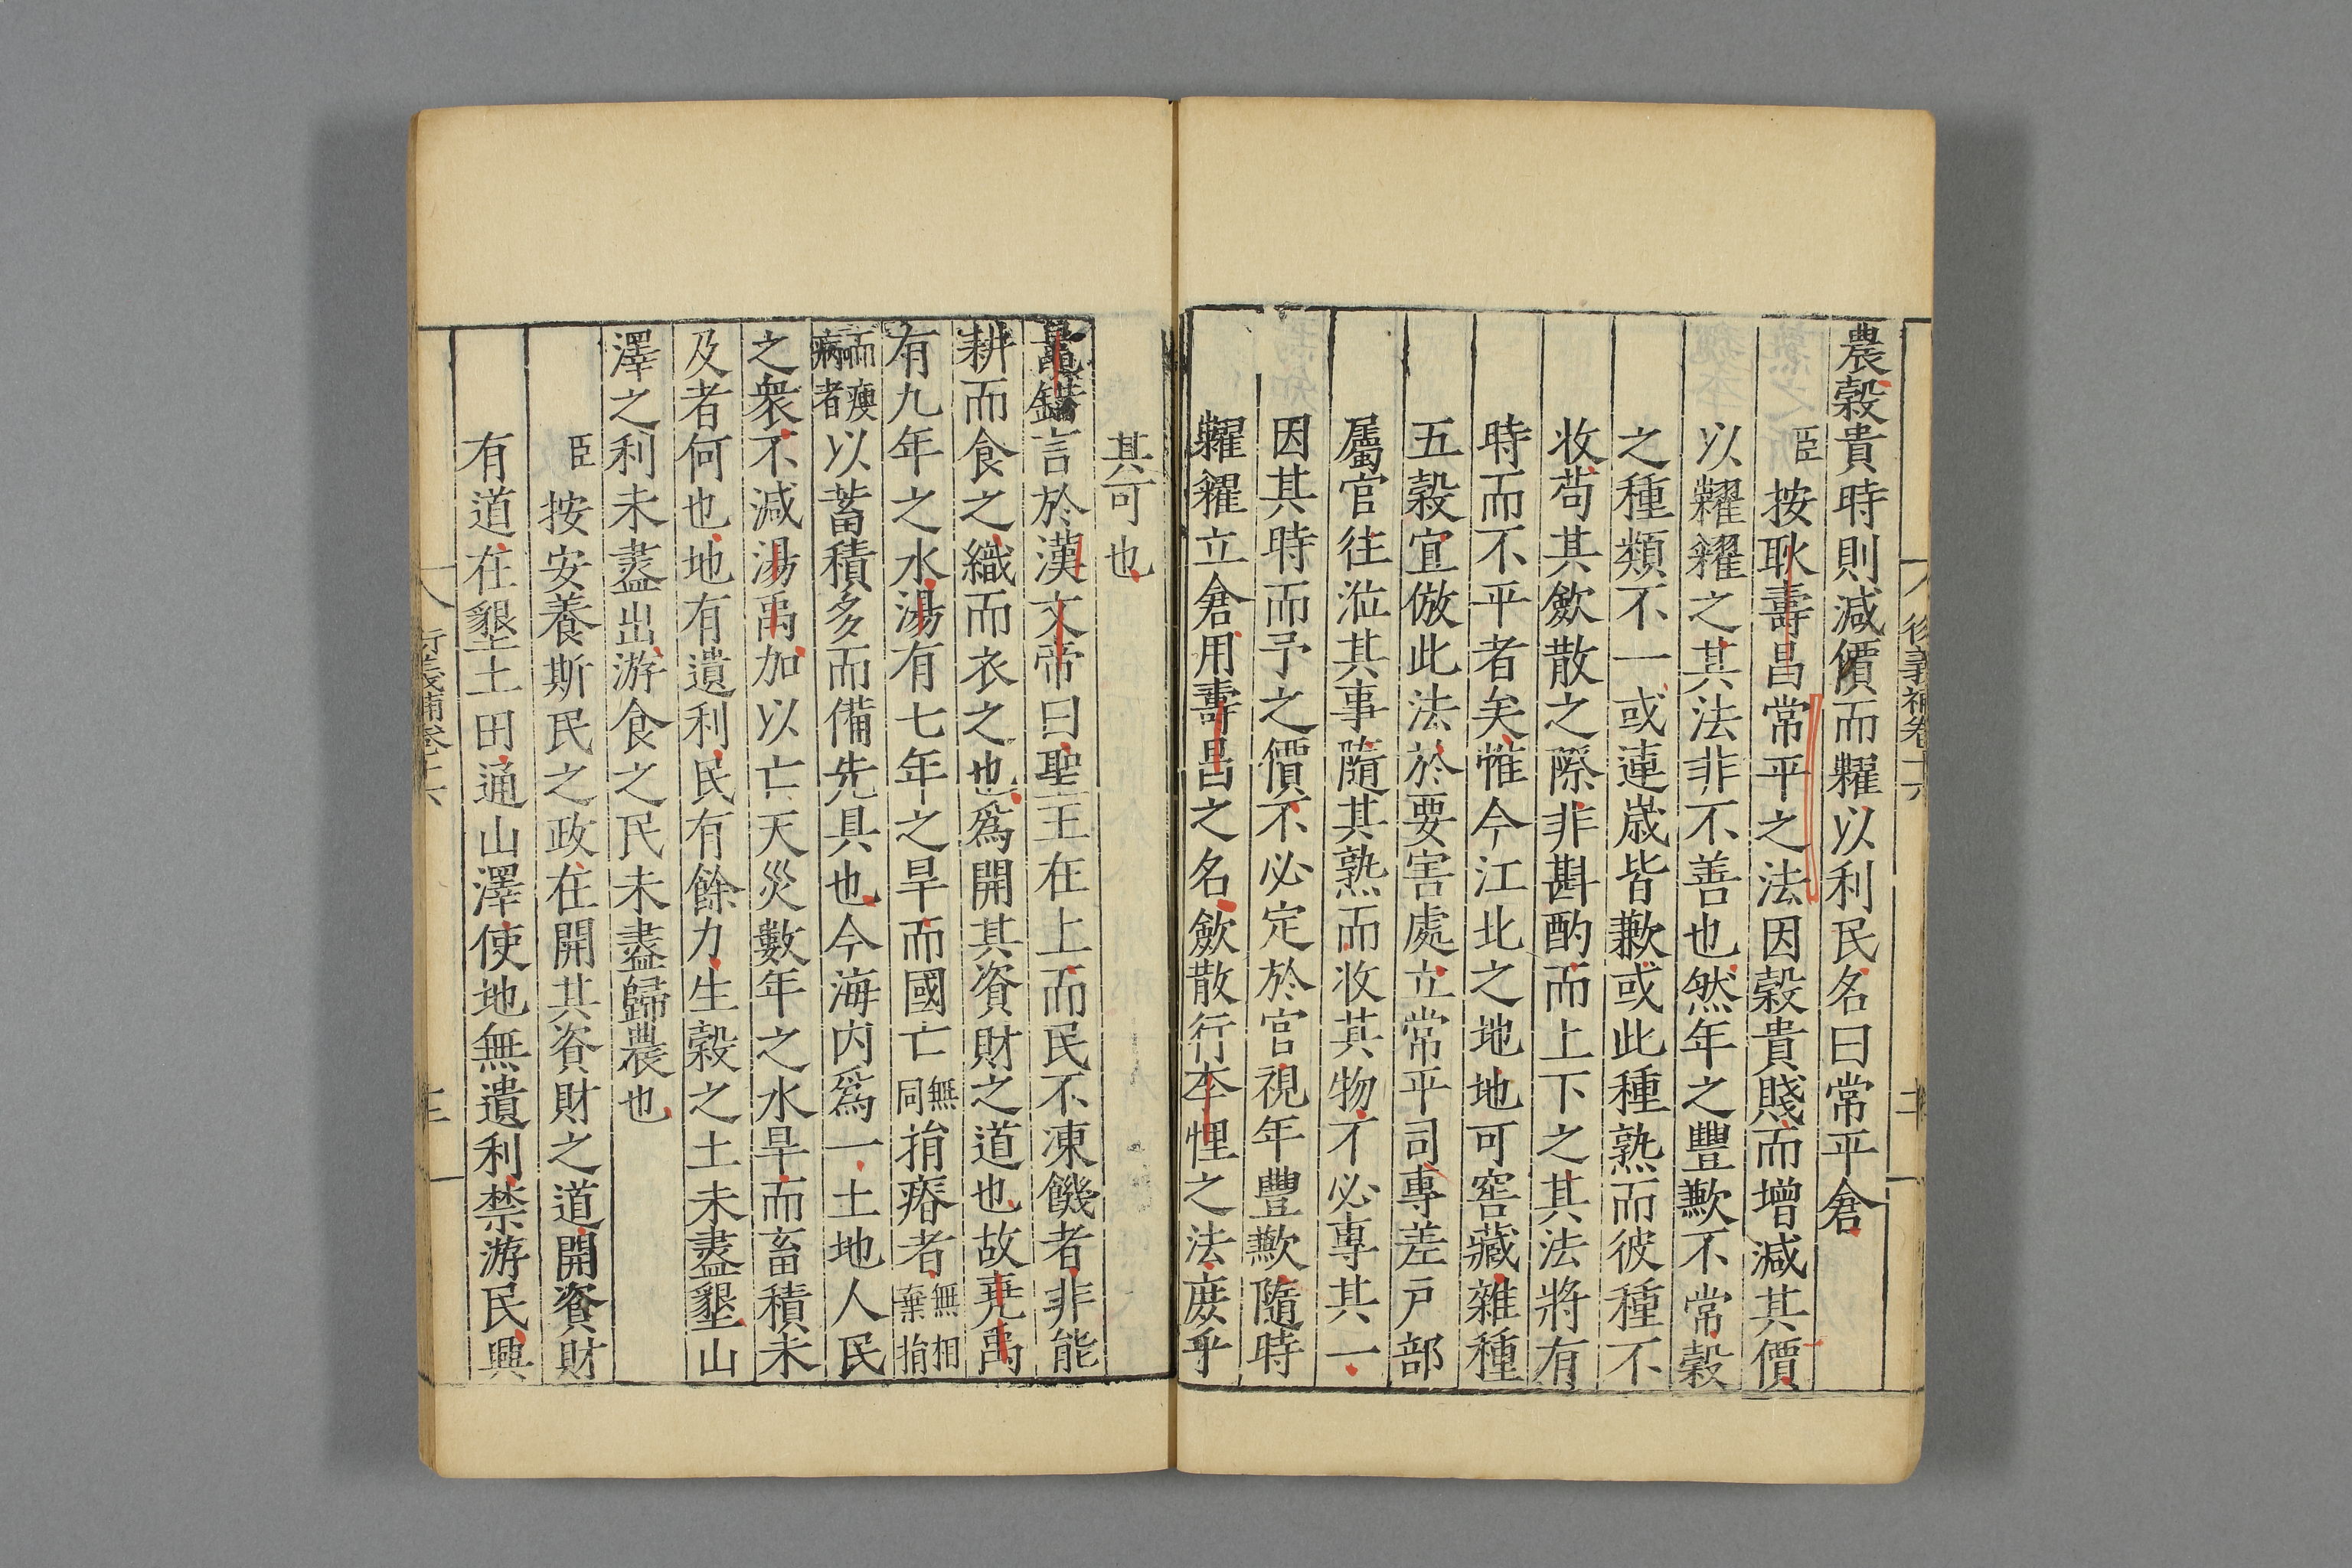 農穀貴時則減價而糶以利民名曰常平倉
臣按耿壽昌常平之法因穀貴賤而增減其價
以糶糴之其法非不善也然年之豐歉不常穀
之種類不一或連歲皆歉或此種熟而彼種不
收苟其斂散之際非斟酌而上下之其法將有
時而不平者矣惟今江北之地地可窖藏雜種
五穀宜倣此法於要害處立常平司專差戶部
屬官往涖其事隨其熟而收其物不必專其一
因其時而予之價不必定於官視年豐歉隨時
糶糴立倉用壽昌之名斂散行李悝之法庶乎
其可也
鼂錯言於漢文帝曰聖王在上而民不凍饑者非能
耕而食之織而衣之也為開其資財之道也故堯禹
有九年之水湯有七年之旱而國亡無同捐瘠者無相棄捐
而瘦病者以蓄積多而備先具也今海內為一土地人民
之衆不減湯禹加以亡天災數年之水旱而畜積未
及者何也地有遺利民有餘力生穀之土未盡墾山
澤之利未盡出游食之民未盡歸農也
臣按安養斯民之政在開其資財之道開資財
有道在墾土田通山澤使地無遺利禁游民興
衍義補卷十六